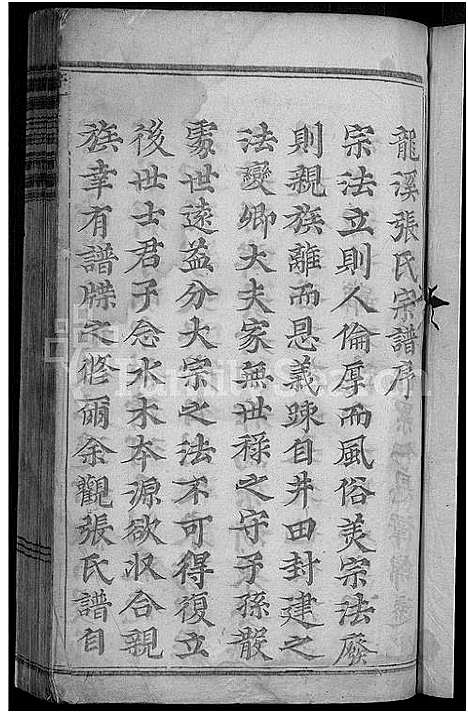 龍溪張氏宗譜序
宗法立則人倫厚而風俗美宗法廢
則親族離而恩義踈自井田封建之
法變卿大夫家無世祿之守子孫散
處世遠益分大宗之法不可得復立
後世士君子念水木本源欲収合親
族幸有譜牒之修爾余觀張氏譜自
FamilySearch